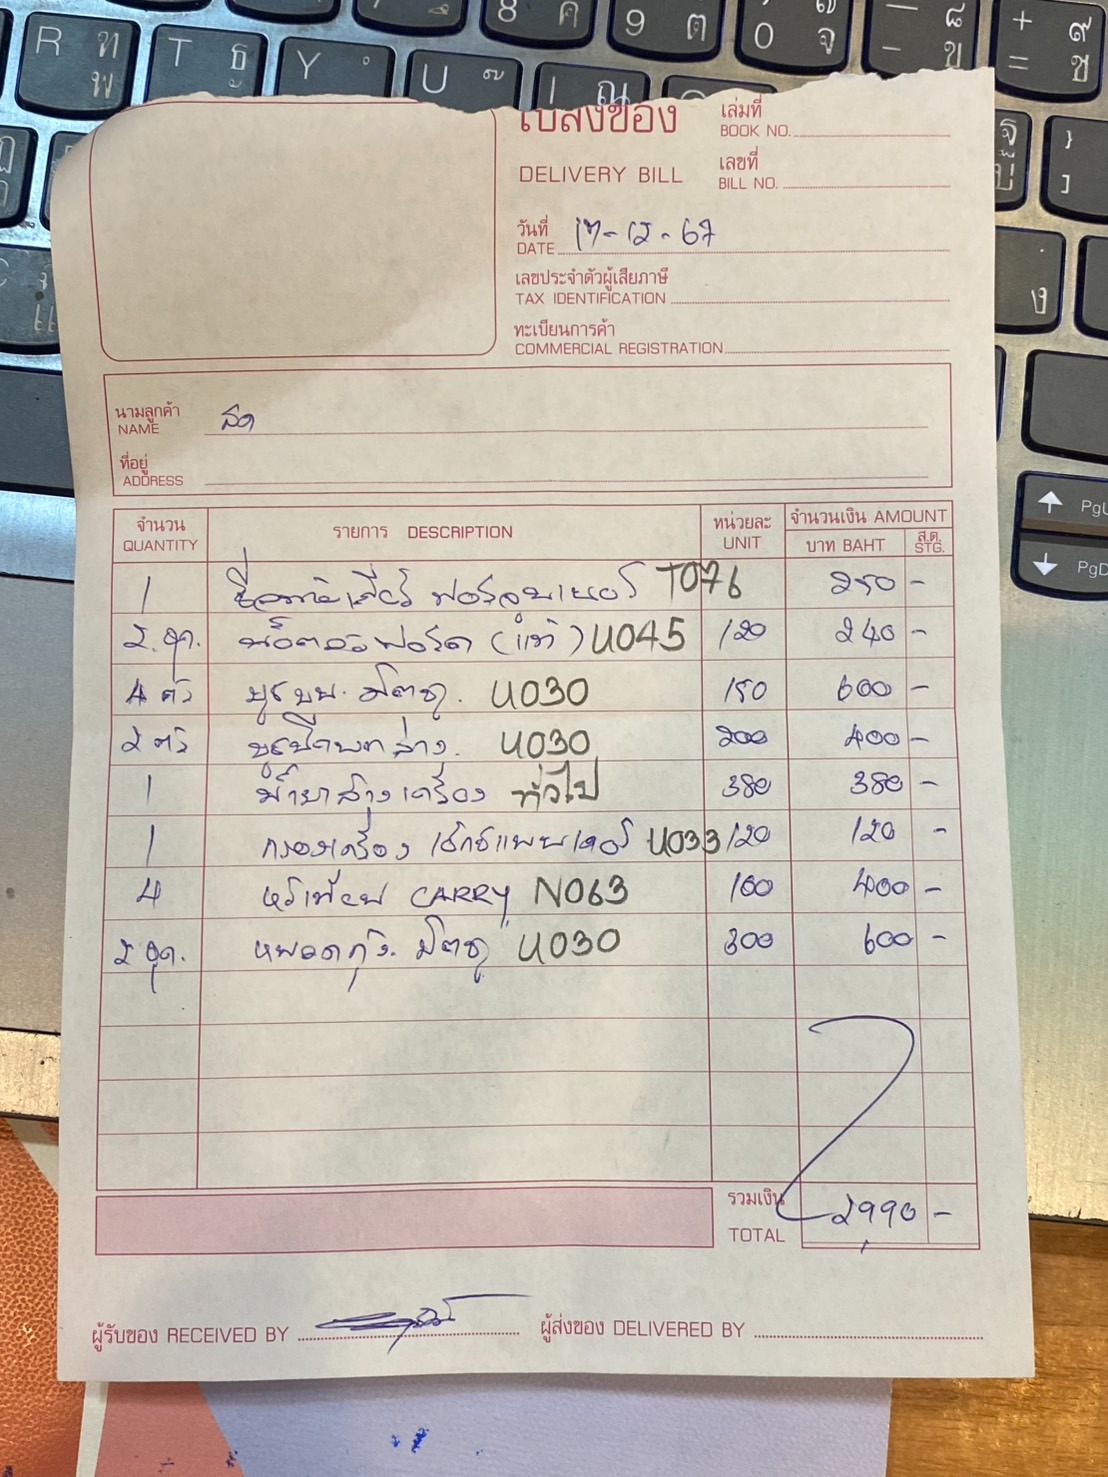 ใบส่งของ
DELIVERY BILL
เล่มที่
BOOK NO.
เลขที่
BILL NO.
วันที่
DATE 17-12-67
เลขประจำตัวผู้เสียภาษี
TAX IDENTIFICATION
ทะเบียนการค้า
COMMERCIAL REGISTRATION
นามลูกค้า
NAME สด
ที่อยู่
ADDRESS
จำนวน QUANTITY รายการ DESCRIPTION หน่วยละ UNIT จำนวนเงิน AMOUNT
บาท BAHT ส.ต. STG.
1 T076 250 -
2 ชุด. น็อตล้อฟอร์ด (แท้) U045 120 240 -
4 ตัว U030 150 600 -
2 ตัว U030 200 400 -
1 น้ำยาล้างเครื่อง ทั่วไป 380 380 -
1 กรองเครื่อง U033 120 120 -
4 หัวเทียน CARRY N063 100 400 -
2 ชุด. U030 300 600 -
รวมเงิน
TOTAL 2,990 -
ผู้รับของ RECEIVED BY
ผู้ส่งของ DELIVERED BY
R ท พ
T ธ
Y
U
I ณ
8 ค
9 ต
0 จ
- ข
+ = ช
PgU
PgD